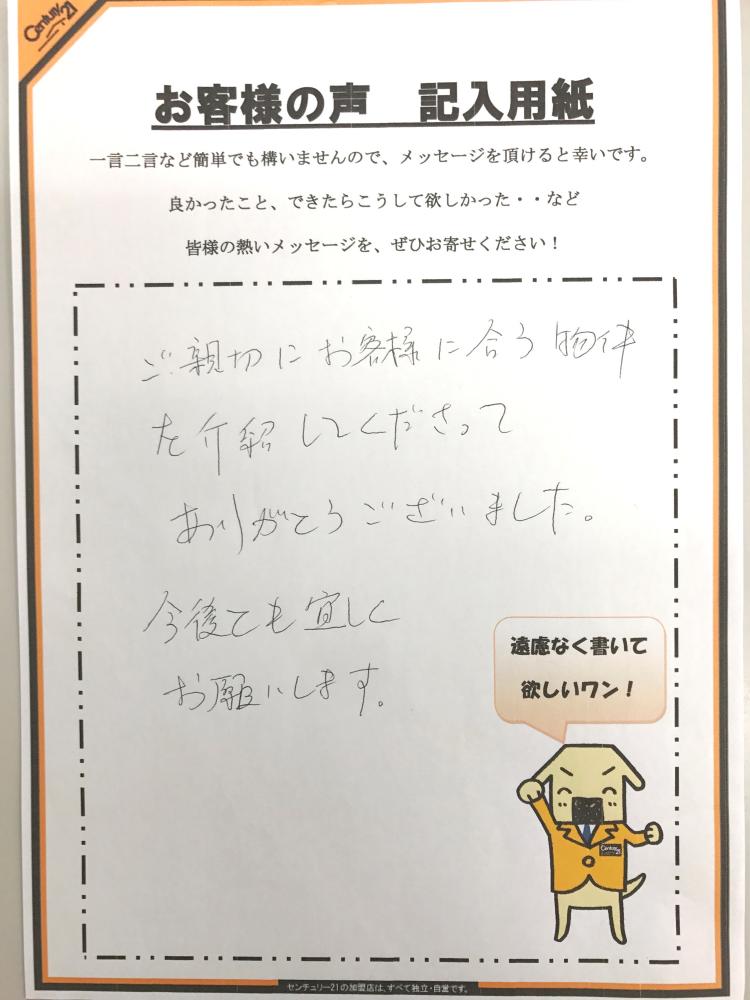 Century 21
お客様の声　記入用紙
一言二言など簡単でも構いませんので、メッセージを頂けると幸いです。
良かったこと、できたらこうして欲しかった・・など
皆様の熱いメッセージを、ぜひお寄せください！
ご親切にお客様に合う物件
を介紹してくださって
ありがとうございました。
今後ても宜しく
お願いします。
遠慮なく書いて
欲しいワン！
Century 21
センチュリー21の加盟店は、すべて独立・自営です。